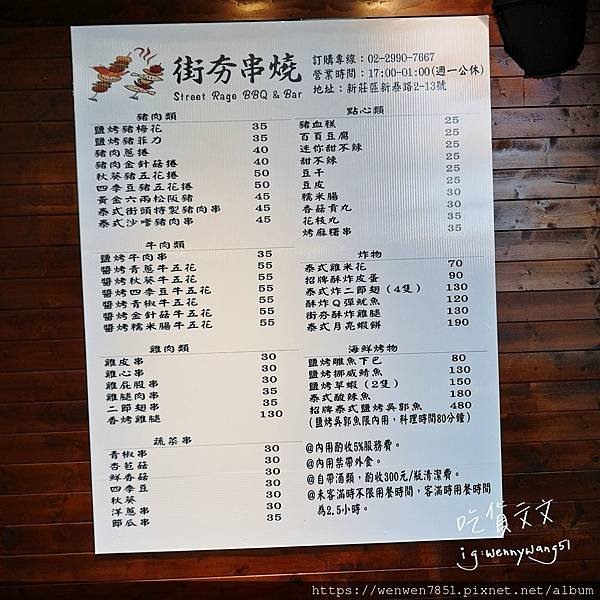 街夯串燒
Street Rage BBQ & Bar
訂購專線：02-2990-7667
營業時間：17:00-01:00(週一公休)
地址：新莊區新泰路2-13號
豬肉類
鹽烤豬梅花 35
鹽烤豬菲力 35
豬肉蔥捲 40
豬肉金針菇捲 40
秋葵豬五花捲 50
四季豆豬五花捲 50
黃金六兩松阪豬 45
泰式街頭特製豬肉串 45
泰式沙嗲豬肉串 45
牛肉類
鹽烤牛肉串 35
醬烤青蔥牛五花 55
醬烤秋葵牛五花 55
醬烤四季豆牛五花 55
醬烤青椒牛五花 55
醬烤金針菇牛五花 55
醬烤糯米腸牛五花 55
雞肉類
雞皮串 30
雞心串 30
雞屁股串 30
雞腿肉串 35
二節翅串 35
香烤雞腿 130
蔬菜串
青椒串 30
杏苞菇 30
鮮香菇 30
四季豆 30
秋葵 30
洋蔥串 30
節瓜串 35
點心類
豬血糕 25
百頁豆腐 25
迷你甜不辣 25
甜不辣 25
豆干 25
豆皮 25
糯米腸 30
香菇貢丸 30
花枝丸 35
烤麻糬串 35
炸物
泰式雞米花 70
招牌酥炸皮蛋 90
泰式炸二節翅（4隻） 130
酥炸Q彈魷魚 120
街夯酥炸雞腿 130
泰式月亮蝦餅 190
海鮮烤物
鹽烤鵰魚下巴 80
鹽烤挪威鯖魚 130
鹽烤草蝦（2隻） 150
泰式酸辣魚 180
招牌泰式鹽烤吳郭魚 480
(鹽烤吳郭魚限內用，料理時間80分鐘)
@內用酌收5%服務費。
@內用禁帶外食。
@自帶酒類，酌收300元/瓶清潔費。
@未客滿時不限用餐時間，客滿時用餐時間
為2.5小時。
吃貨文文
ig:wennywang51
https://wenwen7851.pixnet.net/album